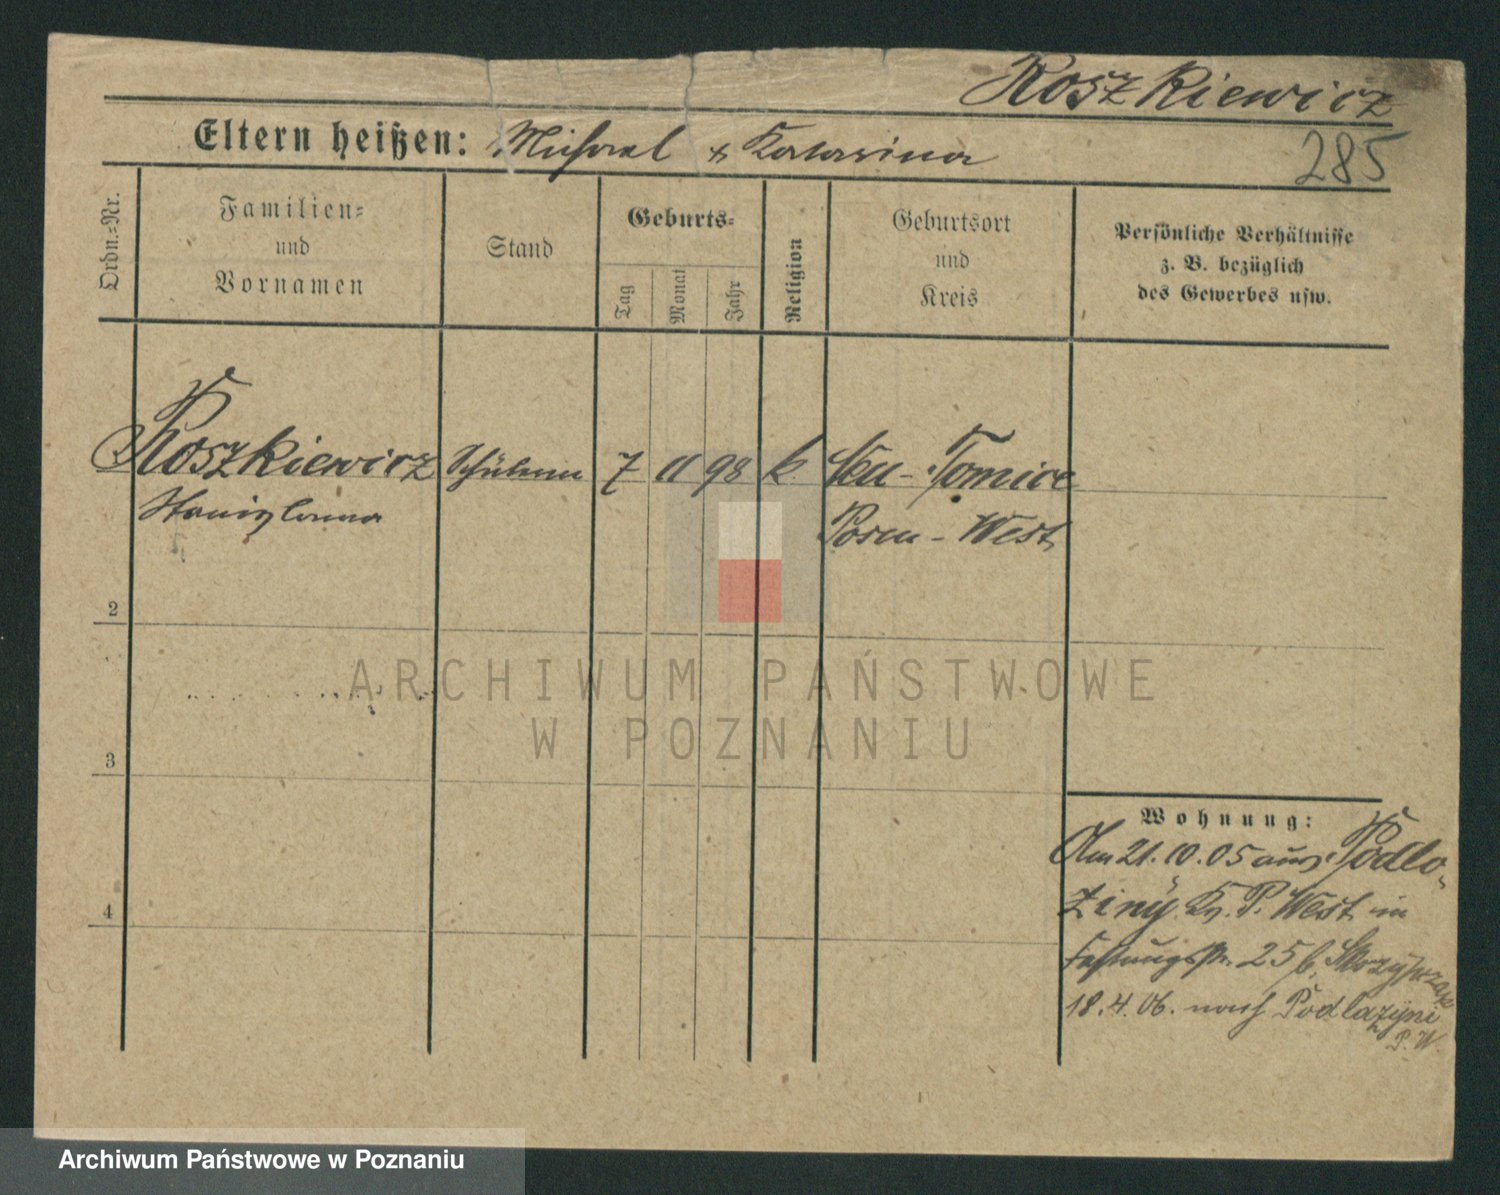 Roszkiewicz
Eltern heißen: Michael & Katarina
285
Ordn.=Nr.
Familien=
und
Vornamen
Stand
Geburts=
Tag
Monat
Jahr
Religion
Geburtsort
und
Kreis
Persönliche Verhältnisse
z. B. bezüglich
des Gewerbes usw.
Roszkiewicz Schülerin 7 11 98 k. Neu-Tomice
Stanislawa Posen-West
2
3
4
ARCHIWUM PAŃSTWOWE
W POZNANIU
Wohnung:
Am 21.10.05 aus Podlo-
ziny Kr. P. West in
Festungsstr. 25 b.
18.4.06. nach Podlozyni
P. W.
Archiwum Państwowe w Poznaniu